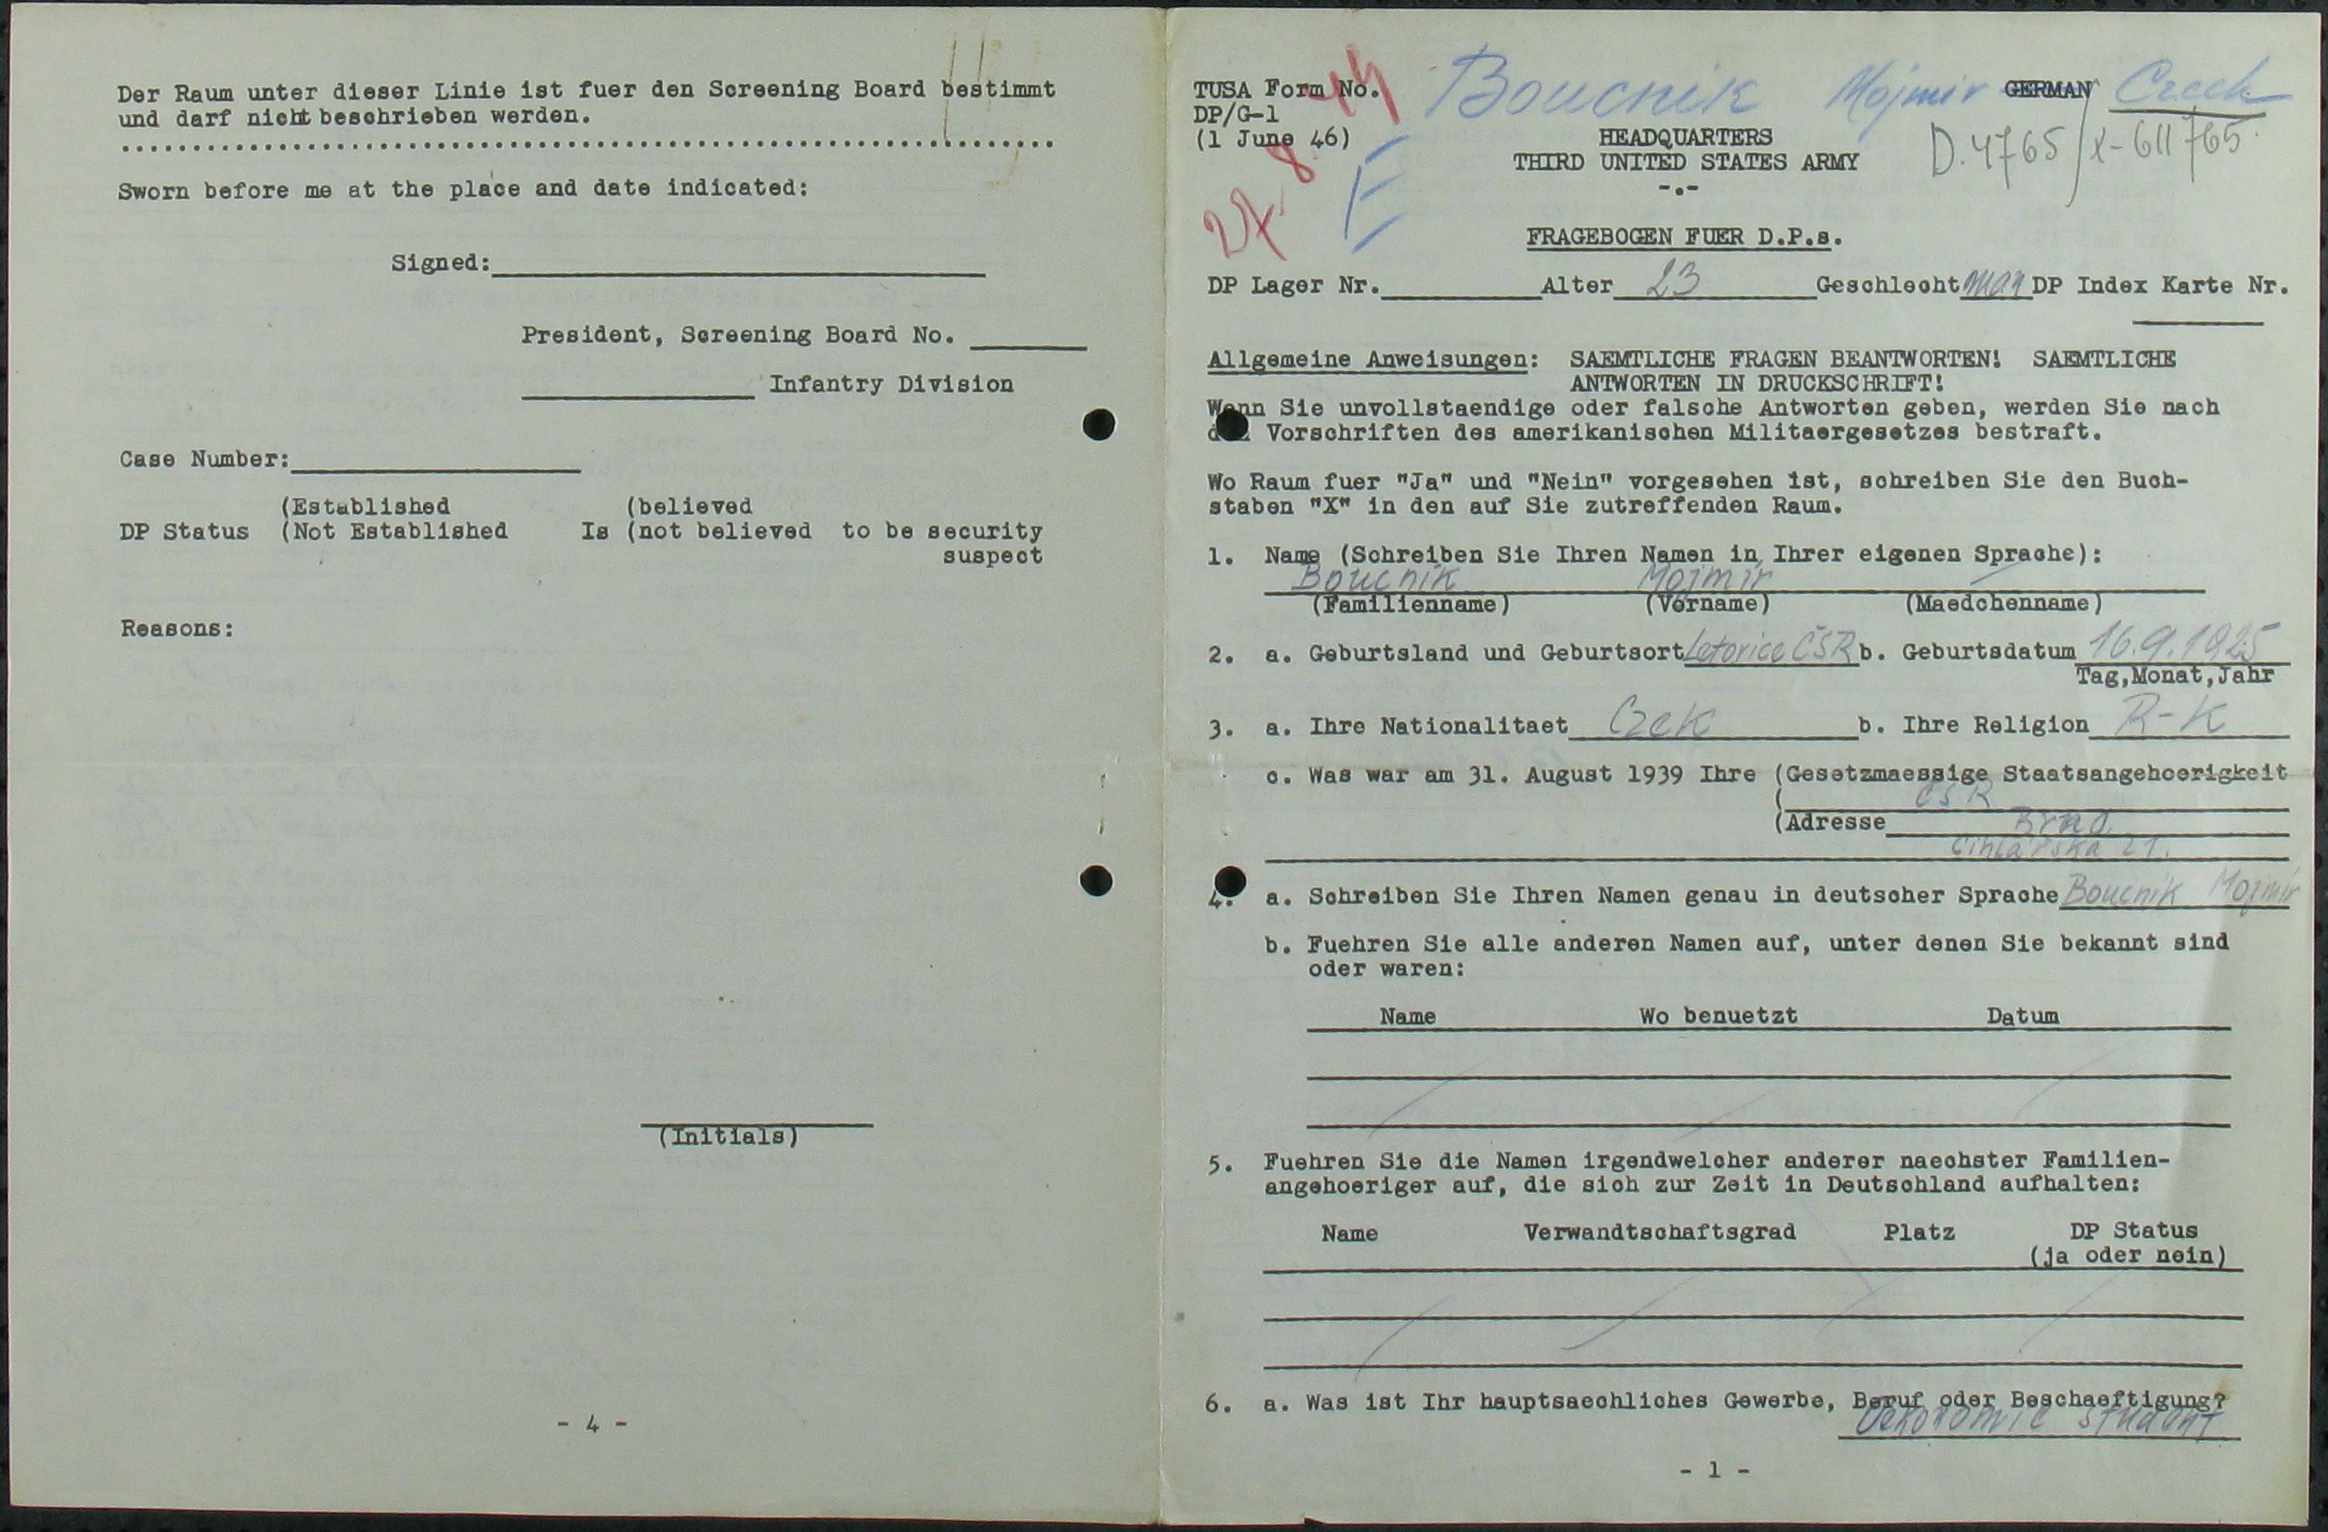 Der Raum unter dieser Linie ist fuer den Screening Board bestimmt
und darf nicht beschrieben werden.
Sworn before me at the place and date indicated:
Signed:
President, Screening Board No.
Infantry Division
Case Number:
(Established (believed
DP Status (Not Established Is (not believed to be security
suspect
Reasons:
(Initials)
- 4 -
TUSA Form No. Boucnik Mojmir GERMAN Czech
DP/G-1
(1 June 46) HEADQUARTERS D.4765/x-611765
THIRD UNITED STATES ARMY
-.-
27. 8. 49
E
FRAGEBOGEN FUER D.P.s.
DP Lager Nr. Alter 23 Geschlecht man DP Index Karte Nr.
Allgemeine Anweisungen: SAEMTLICHE FRAGEN BEANTWORTEN! SAEMTLICHE
ANTWORTEN IN DRUCKSCHRIFT!
Wenn Sie unvollstaendige oder falsche Antworten geben, werden Sie nach
den Vorschriften des amerikanischen Militaergesetzes bestraft.
Wo Raum fuer "Ja" und "Nein" vorgesehen ist, schreiben Sie den Buch-
staben "X" in den auf Sie zutreffenden Raum.
1. Name (Schreiben Sie Ihren Namen in Ihrer eigenen Sprache):
Boucnik Mojmir
(Familienname) (Vorname) (Maedchenname)
2. a. Geburtsland und Geburtsort Letovice ČSR b. Geburtsdatum 16.9.1925
Tag,Monat,Jahr
3. a. Ihre Nationalitaet Czek b. Ihre Religion R-K
c. Was war am 31. August 1939 Ihre (Gesetzmaessige Staatsangehoerigkeit
( ČSR
(Adresse Brno
Cihlařska 21.
4. a. Schreiben Sie Ihren Namen genau in deutscher Sprache Boucnik Mojmir
b. Fuehren Sie alle anderen Namen auf, unter denen Sie bekannt sind
oder waren:
Name Wo benuetzt Datum
5. Fuehren Sie die Namen irgendwelcher anderer naechster Familien-
angehoeriger auf, die sich zur Zeit in Deutschland aufhalten:
Name Verwandtschaftsgrad Platz DP Status
(ja oder nein)
6. a. Was ist Ihr hauptsaechliches Gewerbe, Beruf oder Beschaeftigung?
Oekonomie student
- 1 -